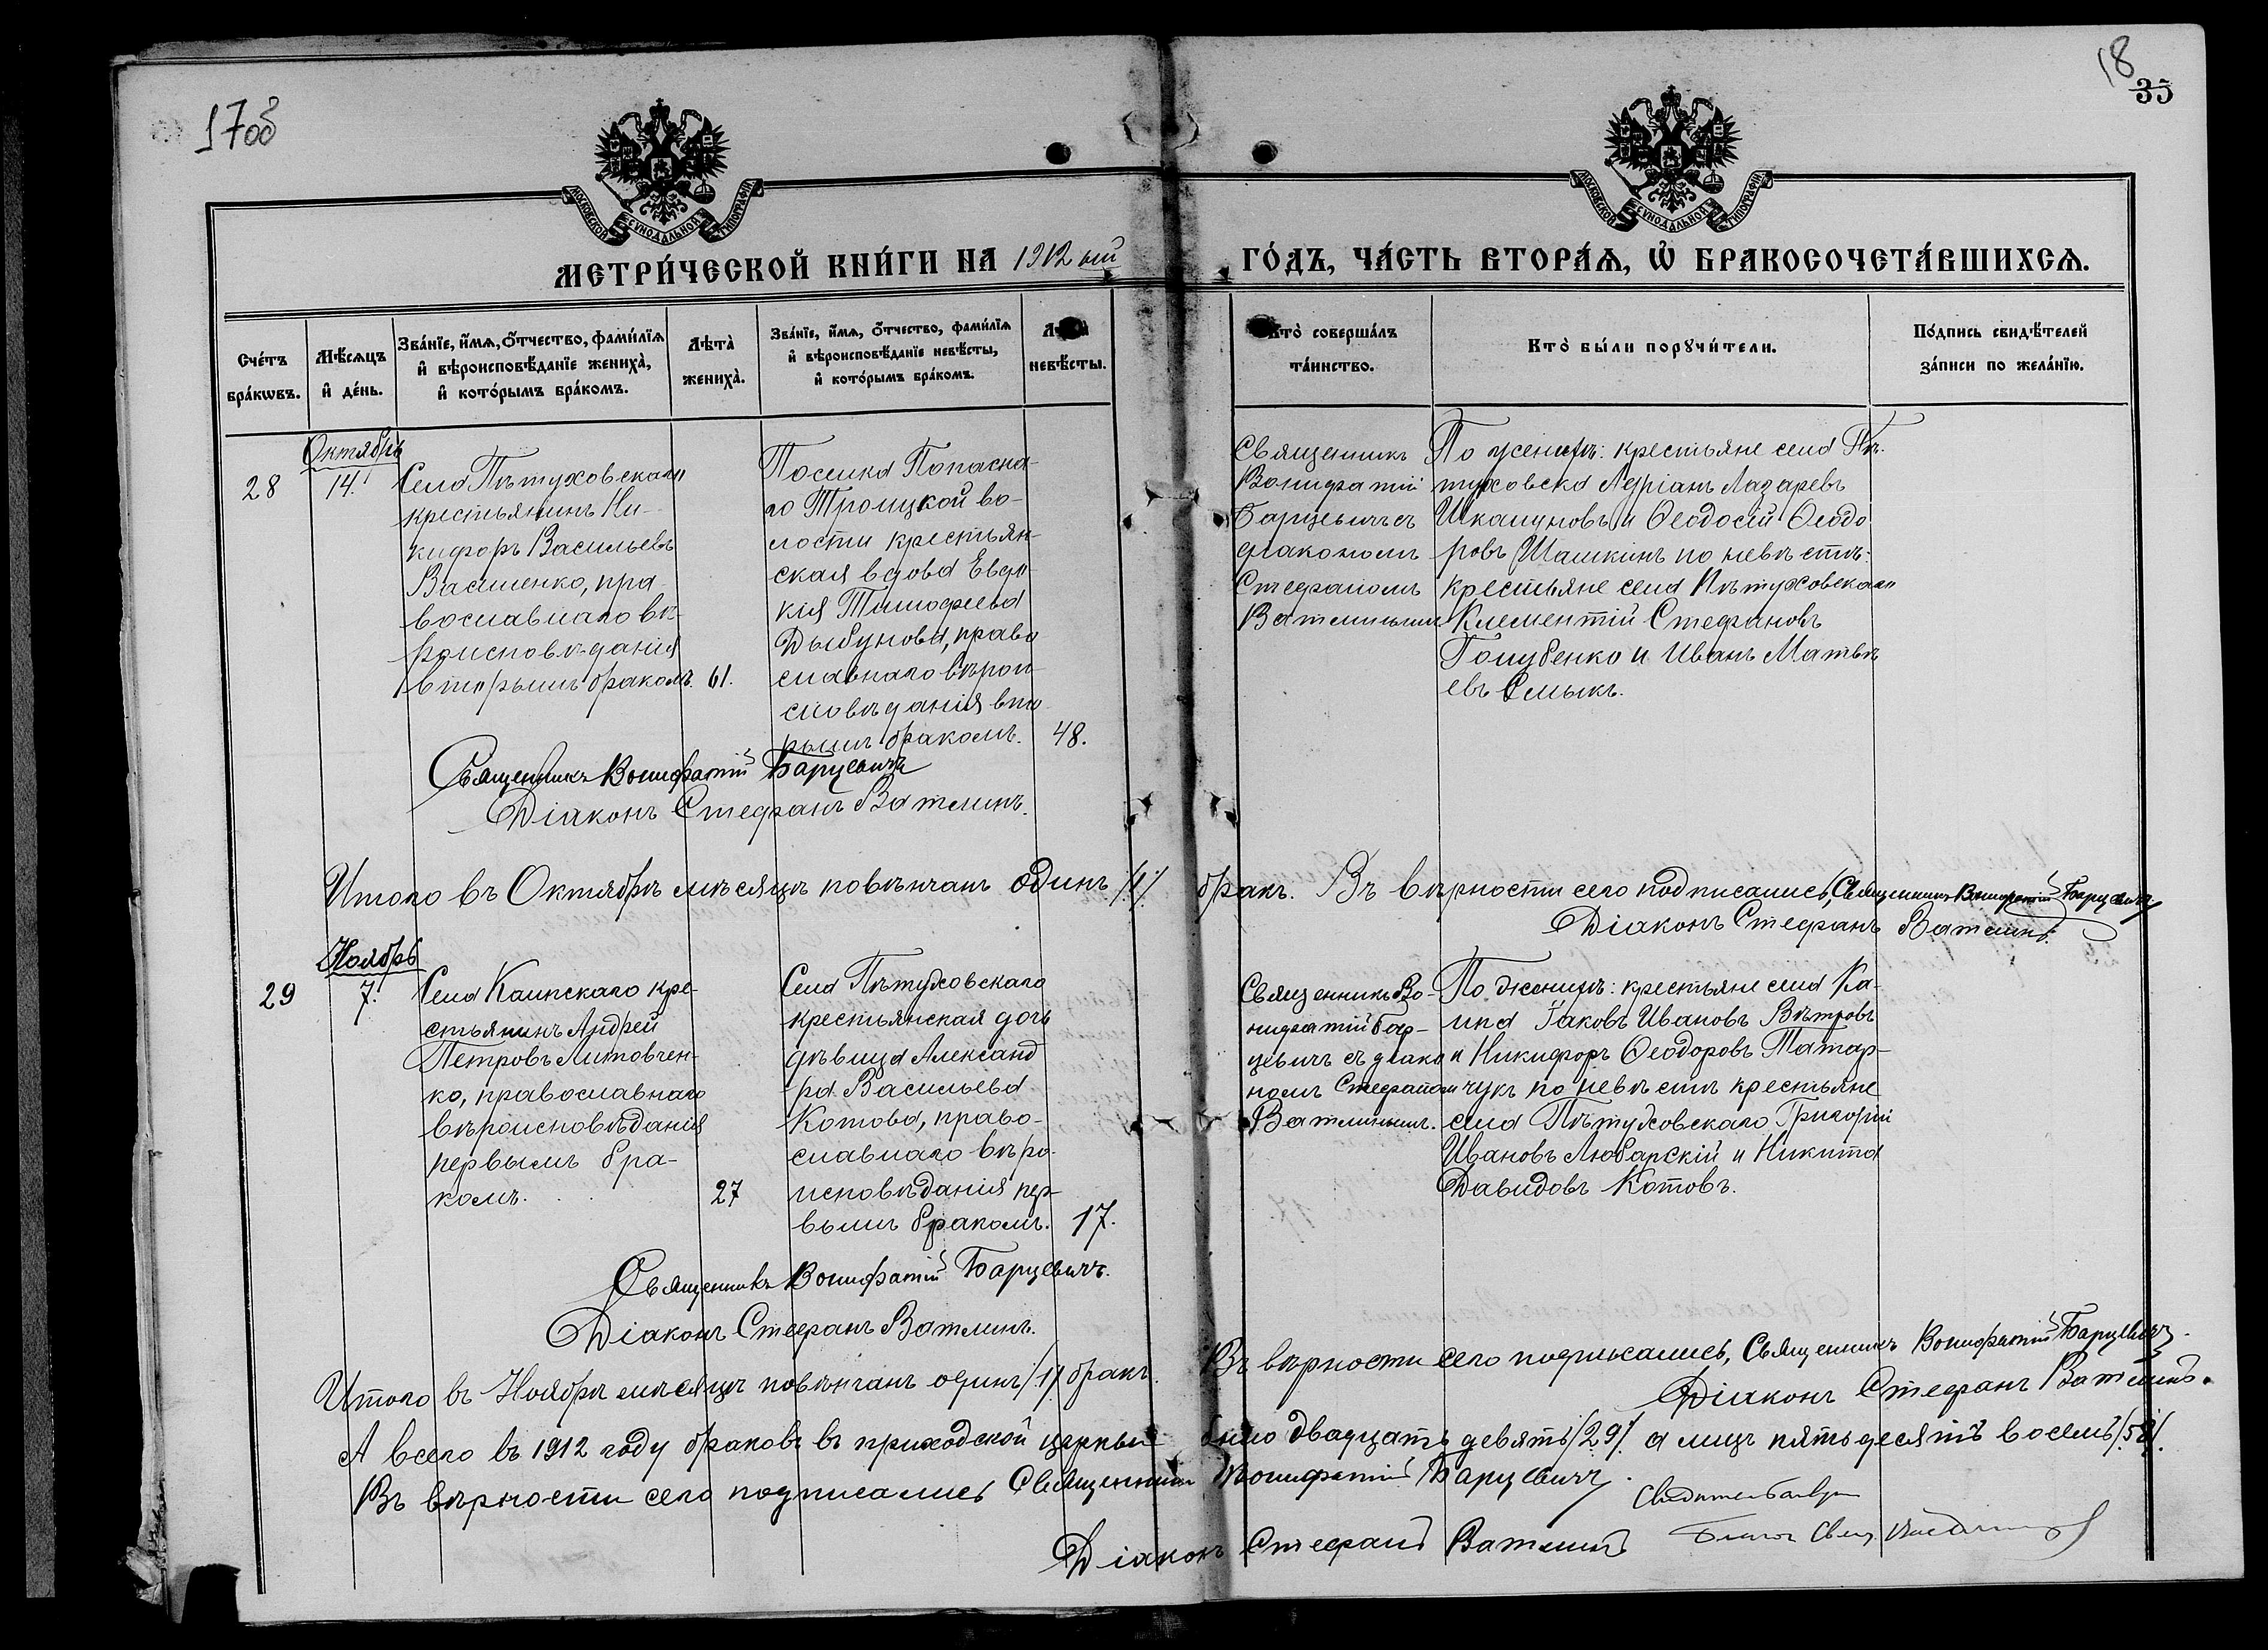 17об
18
35
МОСКОВСКОЙ СѴНОДАЛЬНОЙ ТИПОГРАФІИ
МОСКОВСКОЙ СѴНОДАЛЬНОЙ ТИПОГРАФІИ
МЕТРИ́ЧЕСКОЙ КНИ́ГИ НА 1912 ый
ГО́ДЪ, ЧА́СТЬ ВТОРА́Ѧ, Ѡ҆ БРАКОСОЧЕТА́ВШИХСѦ.
Сче́тъ
бра́кѡвъ.
Мѣ́сѧцъ
и҆ де́нь.
Зва́нїе, и҆́мѧ, ѻ҆́тчество, фами́лїѧ
и҆ вѣроисповѣ́данїе жениха̀,
и҆ кото́рымъ бра́комъ.
Лѣта̀
жениха̀.
Зва́нїе, и҆́мѧ, ѻ҆́тчество, фами́лїѧ
и҆ вѣроисповѣ́данїе невѣ́сты,
и҆ кото́рымъ бра́комъ.
невѣ́сты.
Кто̀ соверша́лъ
та́инство.
Кто̀ бы́ли порꙋчи́тели.
По́дпись свидѣ́телей
за́писи по жела́нїю.
Октябрь
28
14.
Села Пѣтуховскаго
крестьянинъ Ни-
кифоръ Васильевъ
Василенко, пра-
вославнаго вѣ-
роисповѣданія
вторымъ бракомъ.
61.
Поселка Попасна-
го Троицкой во-
лости крестьян-
ская вдова Евдо-
кія Тимофеева
Дыбунова, право
славнаго вѣрои-
сповѣданія вто
рымъ бракомъ.
48.
Священникъ
Вонифатій
Барцевичъ съ
діакономъ
Стефаномъ
Ватлинымъ
По женихѣ: крестьяне села Пѣ-
туховска Адріанъ Лазаревъ
Шкапуновъ и Ѳеодосій Ѳеодо
ровъ Шашкинъ по невѣстѣ:
крестьяне села Пѣтуховскаго
Климентій Стефановъ
Голубенко и Иванъ Матвѣ
евъ Смыкъ.
Священникъ Вонифатій Барцевичъ
Діаконъ Стефанъ Ватлинъ.
Итого въ Октябрѣ мѣсяцѣ повѣнчанъ одинъ /1/ бракъ. Въ вѣрности сего подписались, Священникъ Вонифатій Барцевичъ
Діаконъ Стефанъ Ватлинъ.
Ноябрь
29
7.
Села Каипскаго кре-
стьянинъ Андрей
Петровъ Литовчен-
ко, православнаго
вѣроисповѣданія
первымъ бра-
комъ.
27
Села Пѣтуховскаго
крестьянская дочь
дѣвица Александ
ра Васильева
Котова, право-
славнаго вѣро-
исповѣданія пер-
вымъ бракомъ.
17.
Священникъ Во-
нифатій Бар-
цевичъ съ діако
номъ Стефаномъ
Ватлинымъ.
По женихѣ: крестьяне села Ка-
ипа Іаковъ Ивановъ Вѣтровъ
и Никифоръ Ѳеодоровъ Татар-
чукъ по невѣстѣ крестьяне
села Пѣтуховскаго Григорій
Ивановъ Любарскій и Никита
Давидовъ Котовъ.
Священникъ Вонифатій Барцевичъ.
Діаконъ Стефанъ Ватлинъ.
Итого въ Ноябрѣ мѣсяцѣ повѣнчанъ одинъ /1/ бракъ. Въ вѣрности сего подписались, Священникъ Вонифатій Барцевичъ.
Діаконъ Стефанъ Ватлинъ.
А всего въ 1912 году браковъ въ приходской церкви было двадцать девять /29/. а лицъ пятьдесятъ восемь /58/.
Въ вѣрности сего подписались Священникъ Вонифатій Барцевичъ.
Діаконъ Стефанъ Ватлинъ